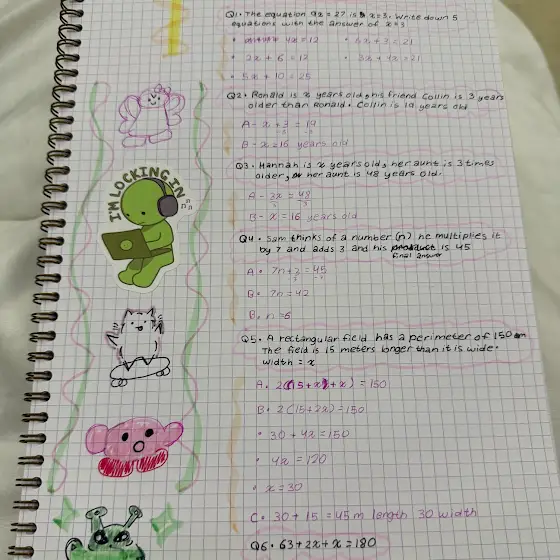 Q1 • The equation 9x = 27 is x = 3. Write down 5
equations with the answer of x=3
• 4x = 12 • 6x + 3 = 21
• 2x + 6 = 12 • 3x + 4x = 21
• 5x + 10 = 25
Q2 • Ronald is x years old, his friend Collin is 3 years
older than Ronald. Collin is 19 years old
A - x + 3 = 19
-3 -3
B - x = 16 years old
Q3 • Hannah is x years old, her aunt is 3 times
older, her aunt is 48 years old.
A - 3x = 48
B - x = 16 years old
Q4 • Sam thinks of a number (n) he multiplies it
by 7 and adds 3 and his product is 45
final answer
A • 7n + 3 = 45
B • 7n = 42
B • n = 6
Q5 • A rectangular field has a perimeter of 150m
The field is 15 meters longer than it is wide.
Width = x
A. 2(15 + x + x) = 150
B • 2(15 + 2x) = 150
• 30 + 4x = 150
• 4x = 120
• x = 30
C • 30 + 15 = 45 m length 30 width
Q6 • 63 + 2x + x = 180
I'M LOCKING IN